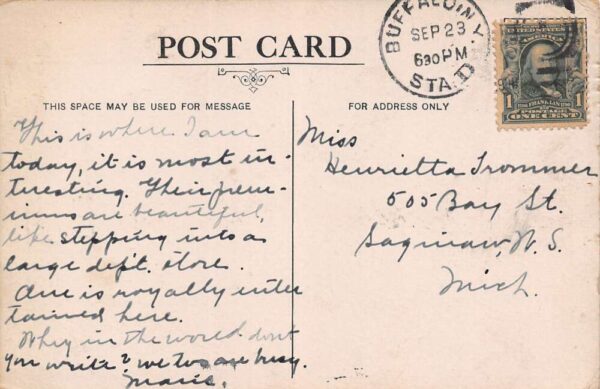 POST CARD
BUFFALO, N.Y.
SEP 23
630 PM
STA. D
UNITED STATES
1 FRANKLIN 1
POSTAGE
ONE CENT
THIS SPACE MAY BE USED FOR MESSAGE
This is where I am
today, it is most in-
teresting. Their prem-
iums are beautiful,
like stepping into a
large dep't. store.
One is royally enter
tained here.
Why in the world dont
you write? we two are busy.
Marie.
FOR ADDRESS ONLY
Miss
Henrietta Trommer
505 Bay St.
Saginaw, W. S.
Mich.